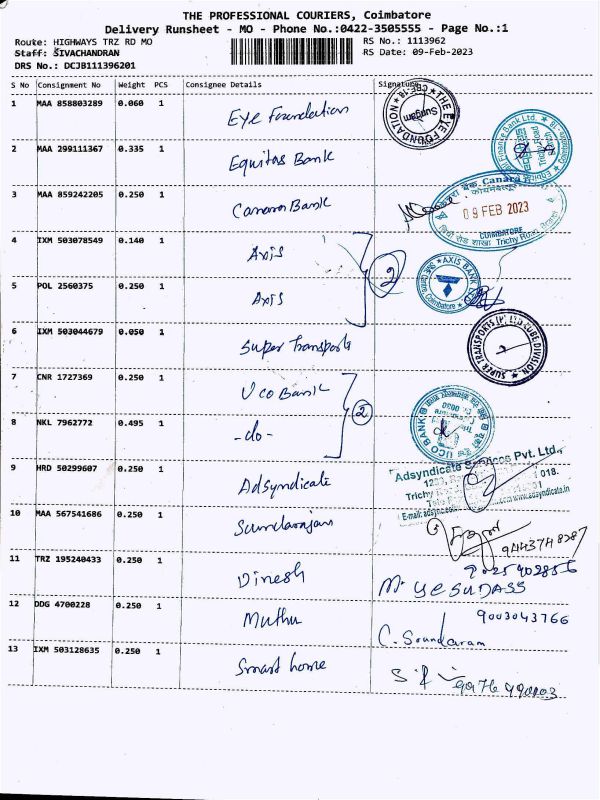 THE PROFESSIONAL COURIERS, Coimbatore
Delivery Runsheet - MO - Phone No.:0422-3505555 - Page No.:1
Route: HIGHWAYS TRZ RD MO RS No.: 1113962
Staff: SIVACHANDRAN RS Date: 09-Feb-2023
DRS No.: DCJB111396201
S No Consignment No Weight PCS Consignee Details Signature
1 MAA 858803289 0.060 1 Eye Foundation
THE EYE FOUNDATION
Sungam
CBE-18
2 MAA 299111367 0.335 1 Equitas Bank
3 MAA 859242205 0.250 1 Canara Bank
Canara
09 FEB 2023
COIMBATORE
Trichy Road
4 IXM 503078549 0.140 1 Axis
2
AXIS BANK
Coimbatore
5 POL 2560375 0.250 1 Axis
6 IXM 503044679 0.050 1 Super Transports
SUPER TRANSPORTS (P) LTD CUBE DIVISION
7 CNR 1727369 0.250 1 Uco Bank
2
UCO BANK
8 NKL 7962772 0.495 1 -do-
9 HRD 50299607 0.250 1 Adsyndicate
Adsyndicate Services Pvt. Ltd.,
Trichy
018.
www.adsyndicate.in
10 MAA 567541686 0.250 1 Sundararajan
9443748287
11 TRZ 195240433 0.250 1 Dinesh
9025902856
Mr YESUDASS
12 DDG 4700228 0.250 1 Muthu
9003043766
C. Soundaram
13 IXM 503128635 0.250 1 Smart home